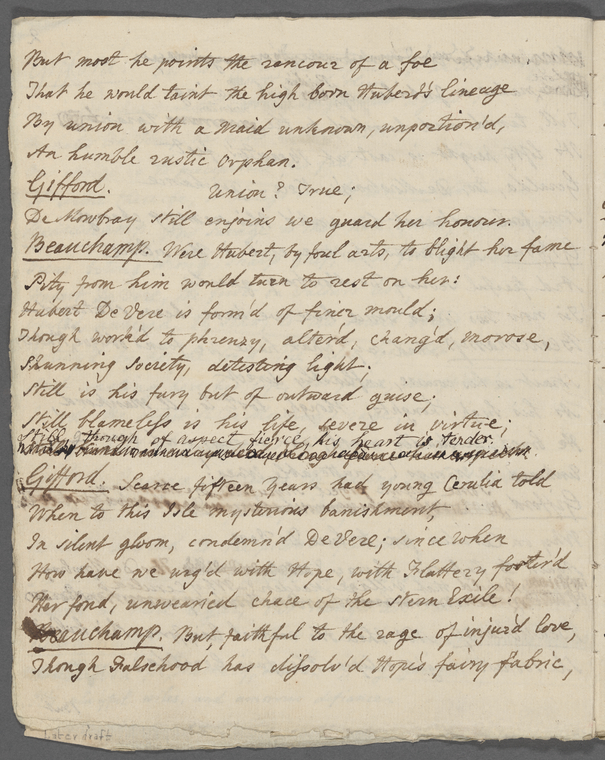 But most he points the rancour of a foe
That he would taint the high born Huberd's lineage
By union with a maid unknown, unportion'd,
An humble rustic Orphan.
Gifford. Union? True;
De Mowbray still enjoins we guard her honour.
Beauchamp. Were Hubert, by foul arts, to blight her fame
Pity from him would turn to rest on her:
Hubert De Vere is form'd of finer mould;
Though work'd to phrenzy, alter'd, chang'd, morose,
Shunning Society, detesting light;
Still is his fury but of outward guise;
Still blameless is his life, severe in virtue;
Still, though of aspect fierce, his heart is tender.
Gifford. Scarce fifteen Years had young Cerulia told
When to this Isle mysterious banishment,
In silent gloom, condemn'd De Vere; since when
How have we urg'd with Hope, with Flattery foster'd
Her fond, unwearied chace of the stern Exile!
Beauchamp. But, faithful to the rage of injur'd love,
Though Falsehood has dissolv'd Hope's fairy fabric,
Later draft